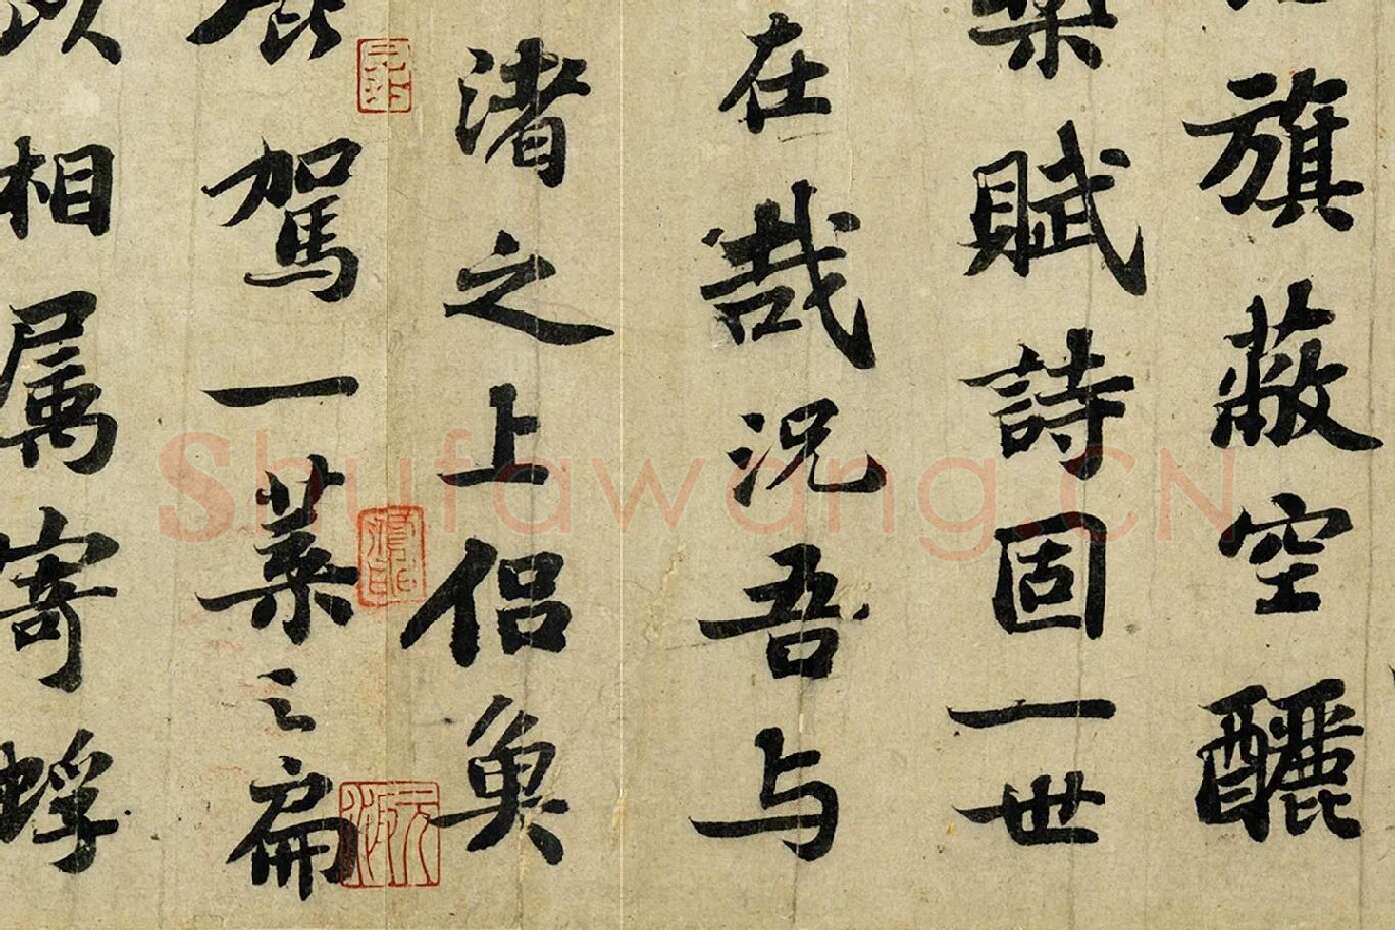 旗蔽空釃
槊賦詩固一世
在哉況吾與
渚之上侣魚
鹿駕一葉之扁
以相属寄蜉
Shufawang.CN